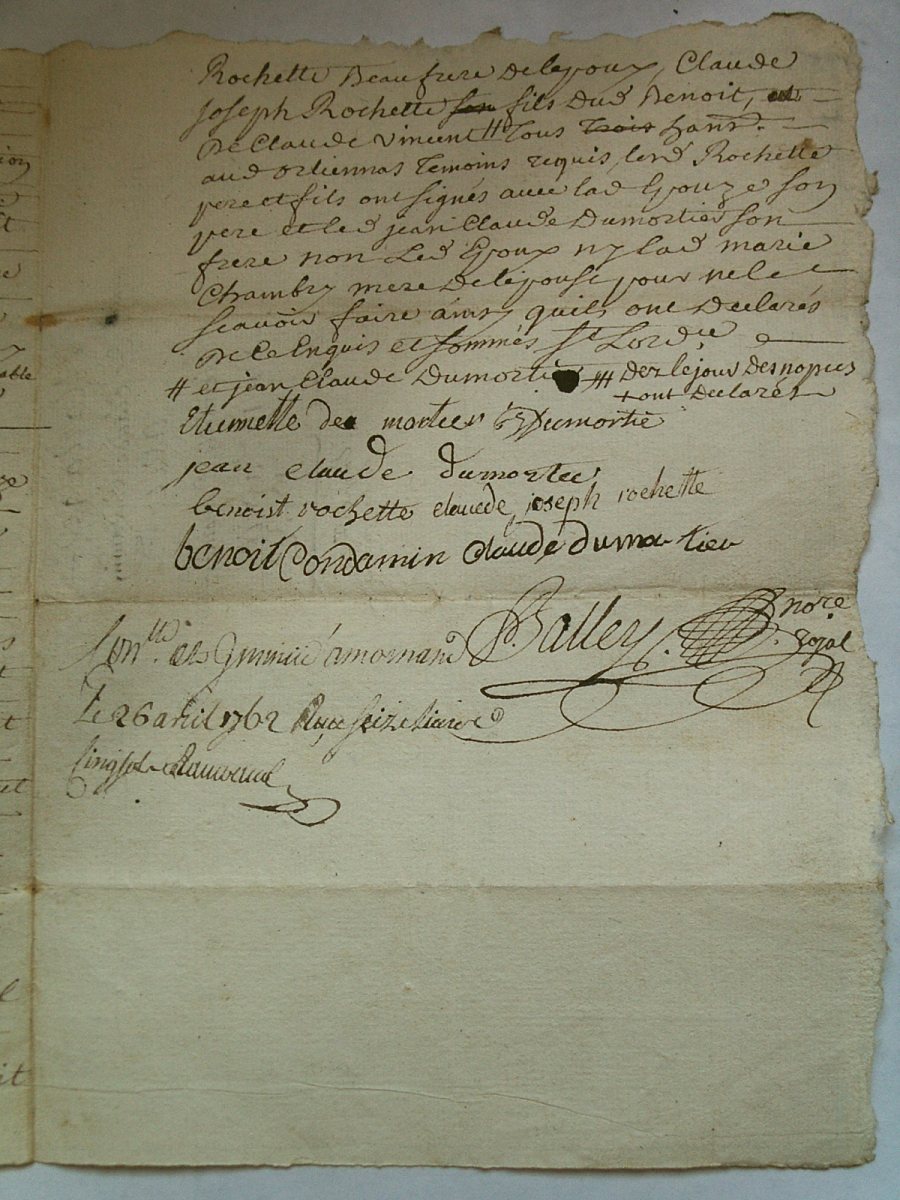 Rochette Beaufrere De lepoux, Claude
Joseph Rochette son fils Dud Benoit, et
De Claude Vincent # tous trois habns
aud Orliennas temoins requis, lesd Rochette
pere et fils ont signés avec lad Epouze son
pere et led jean Claude Dumortier son
frere non Led Epoux ny lad marie
Chambry mere De lepouse pour ne le
scavoir faire ainsy quils ont Declarés
De ce Enquis et sommés St Lord.ce
# et jean Claude Dumortier ### Dez le jour Des nopces
+ ont Declarés
Etiennette de mortier Dumortie
jean claude dumortier
benoist rochette claude joseph rochette
benoit Condamin Claude dumortier
Balley nore
royal
Conllé à mornand
Le 26 avril 1762 Reçu seize livres
cinq sols
ion
t
able
ze
t
et
it